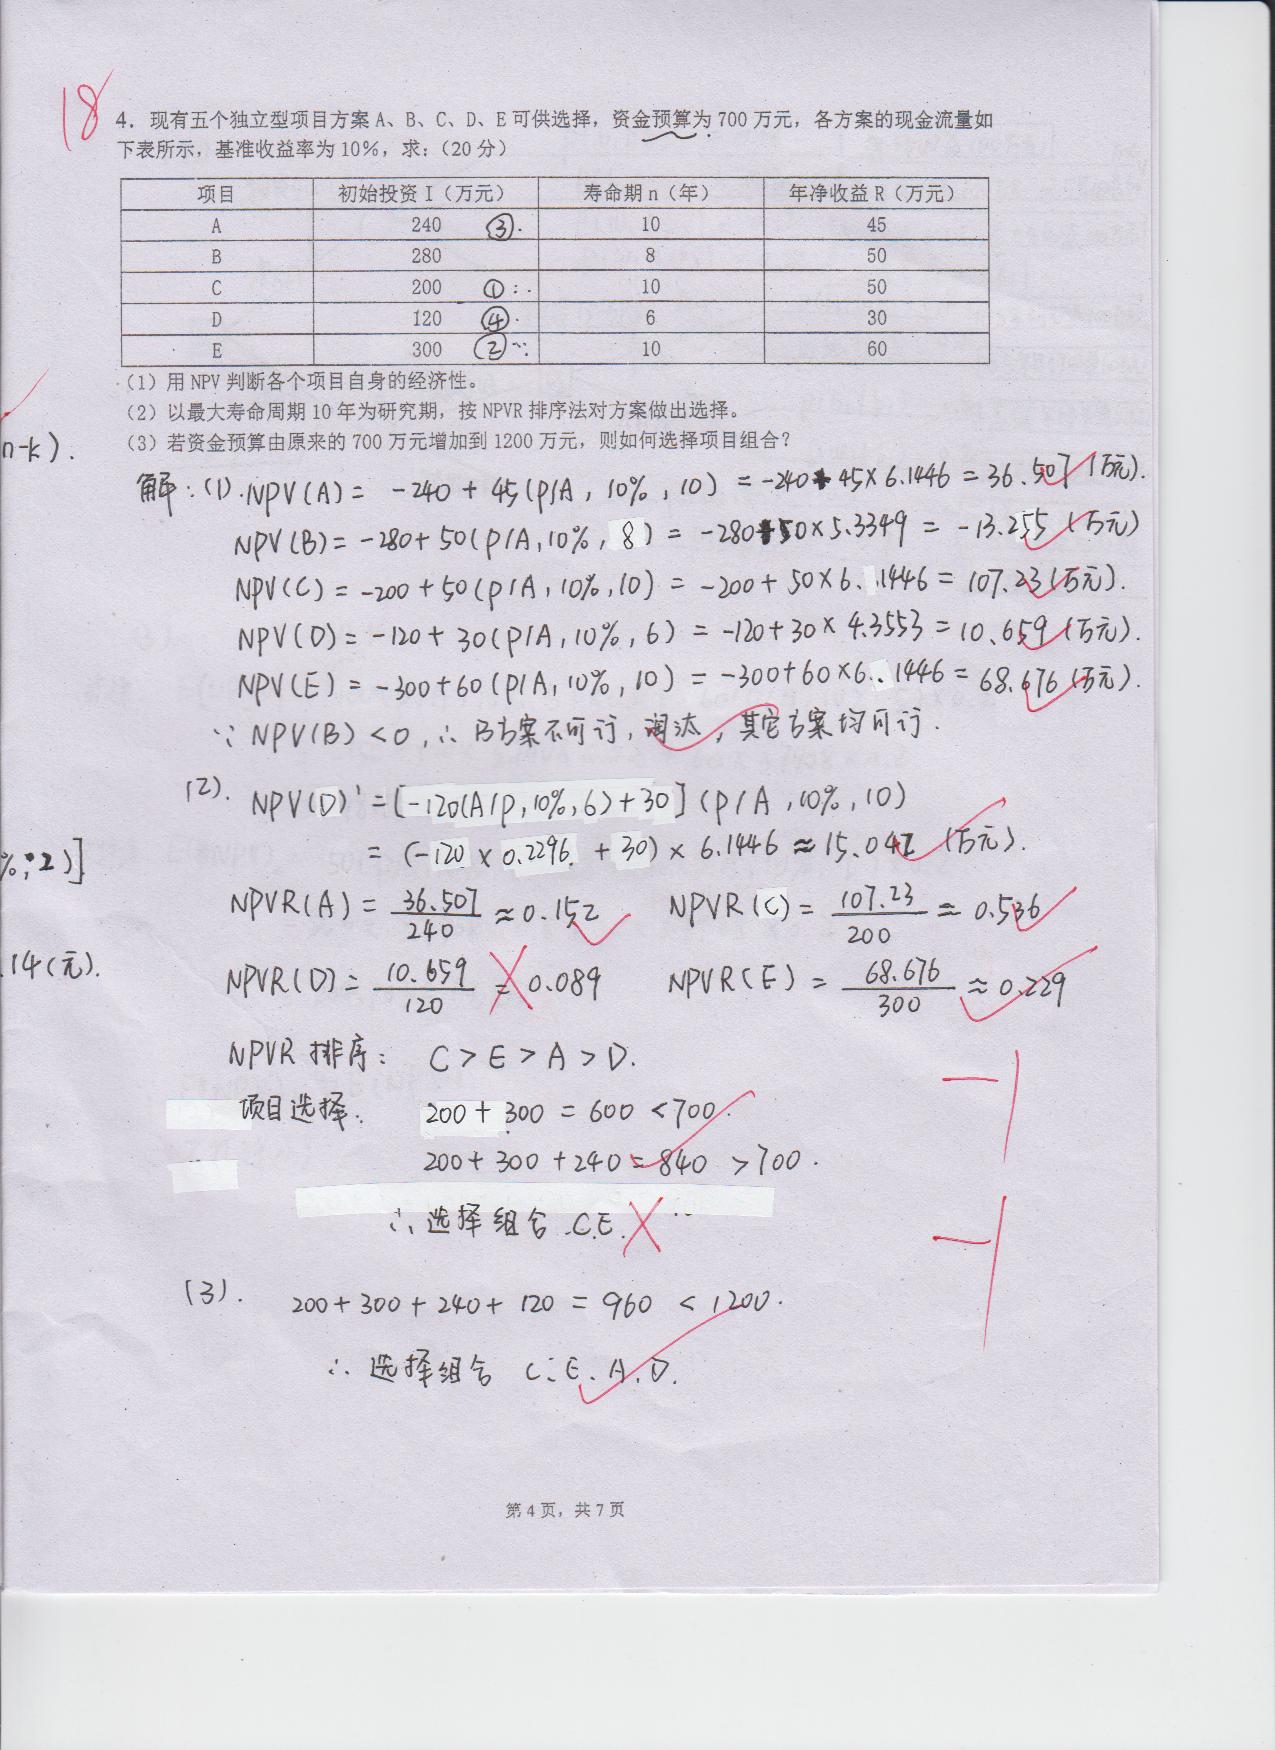 18
4．现有五个独立型项目方案 A、B、C、D、E 可供选择，资金预算为 700 万元，各方案的现金流量如
下表所示，基准收益率为 10%，求：（20 分）
项目 初始投资 I（万元） 寿命期 n（年） 年净收益 R（万元）
A 240 ③. 10 45
B 280 8 50
C 200 ① 10 50
D 120 ④ 6 30
E 300 ② 10 60
（1）用 NPV 判断各个项目自身的经济性。
（2）以最大寿命周期 10 年为研究期，按 NPVR 排序法对方案做出选择。
n-k).
（3）若资金预算由原来的 700 万元增加到 1200 万元，则如何选择项目组合？
解：(1). NPV(A) = -240 + 45(P/A, 10%, 10) = -240+45×6.1446 = 36.507 (万元).
NPV(B) = -280+50(P/A,10%,8) = -280+50×5.3349 = -13.255 (万元)
NPV(C) = -200+50(P/A,10%,10) = -200+50×6.1446 = 107.23(万元).
NPV(D) = -120+30(P/A,10%,6) = -120+30×4.3553 = 10.659 (万元).
NPV(E) = -300+60(P/A,10%,10) = -300+60×6.1446 = 68.676 (万元).
∵ NPV(B) < 0, ∴ B方案不可行, 淘汰, 其它方案均可行.
(2). NPV(D)' = [-120(A/P,10%,6)+30](P/A,10%,10)
= (-120 × 0.2296 + 30) × 6.1446 ≈ 15.042 (万元).
%,2)]
NPVR(A) = 36.507/240 ≈ 0.152 NPVR(C) = 107.23/200 ≈ 0.536
.14(元).
NPVR(D) = 10.659/120 = 0.089 NPVR(E) = 68.676/300 ≈ 0.229
NPVR 排序: C > E > A > D.
-1
项目选择. 200 + 300 = 600 < 700.
200 + 300 + 240 = 840 > 700.
∴ 选择组合 C.E.
-1
(3). 200+300+240+120 = 960 < 1200.
∴ 选择组合 C、E、A、D.
第 4 页，共 7 页